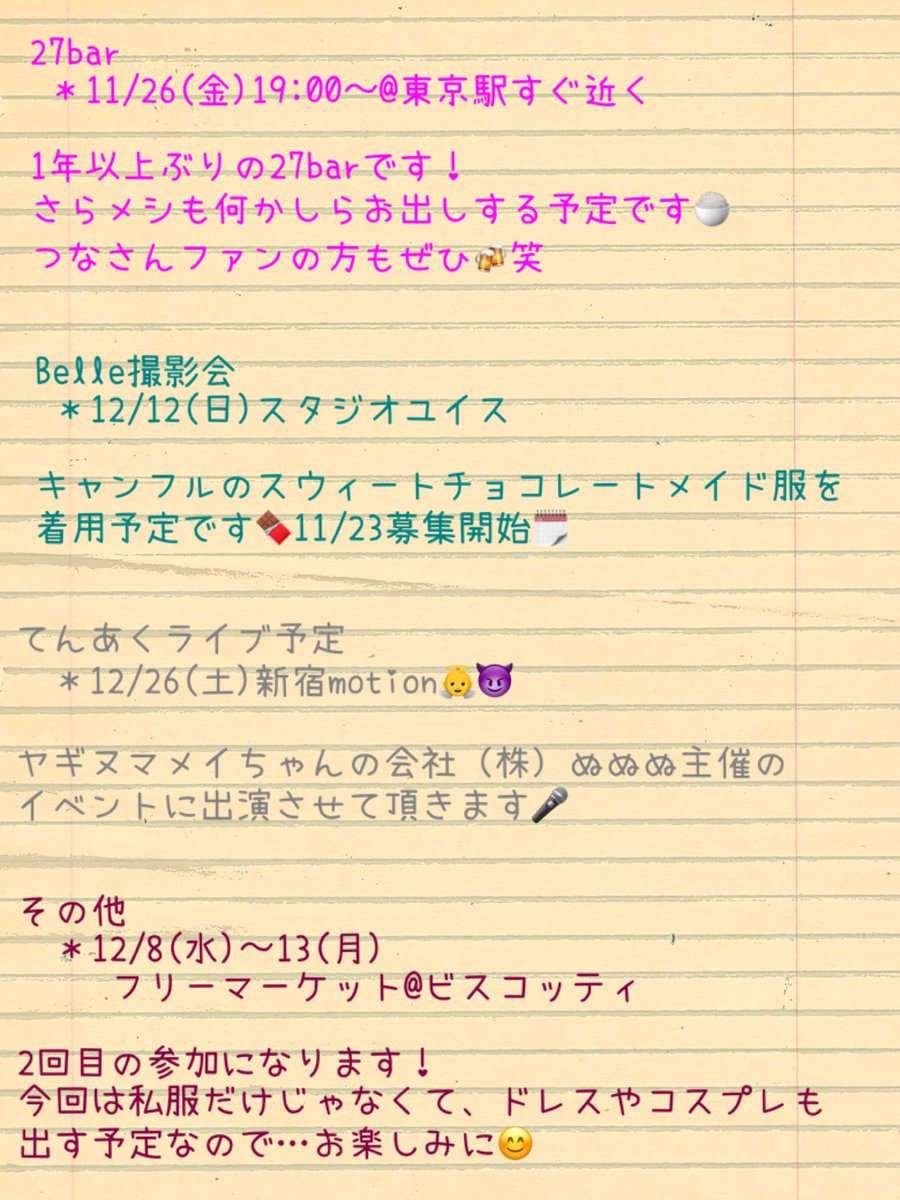 27bar
＊11/26(金)19:00〜@東京駅すぐ近く
1年以上ぶりの27barです！
さらメシも何かしらお出しする予定です🍚
つなさんファンの方もぜひ🍻笑
Belle撮影会
＊12/12(日)スタジオユイス
キャンフルのスウィートチョコレートメイド服を
着用予定です🍫11/23募集開始🗓
てんあくライブ予定
＊12/26(土)新宿motion👼😈
ヤギヌマメイちゃんの会社（株）ぬぬぬ主催の
イベントに出演させて頂きます🎤
その他
＊12/8(水)〜13(月)
フリーマーケット@ビスコッティ
2回目の参加になります！
今回は私服だけじゃなくて、ドレスやコスプレも
出す予定なので…お楽しみに😊